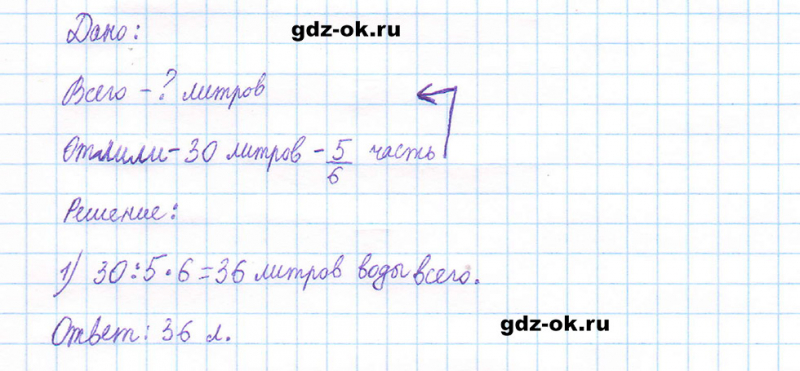 Дано: gdz-ok.ru
Всего - ? литров
Отлили - 30 литров - 5/6 часть
Решение:
1) 30:5·6=36 литров воды всего.
Ответ: 36 л. gdz-ok.ru